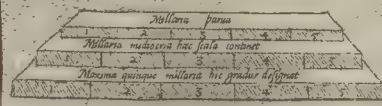 Millaria parua
2 3 4 5
Millaria mediocria hæc scala continet
2 3 4 5
Maxima quinque millaria hic gradus designat
2 3 4 5